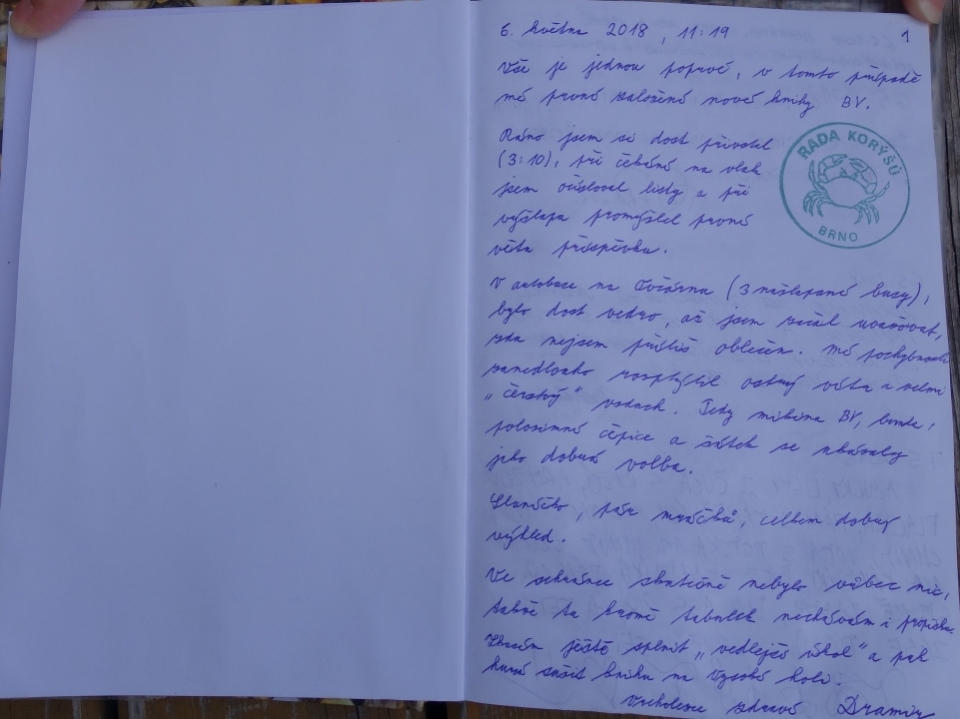 6. května 2018, 11:19
1
Vše je jednou poprvé, v tomto případě
mé první založení nové knihy BV.
RADA KORÝŠŮ
BRNO
Ráno jsem si dost přivstal
(3:10), při čekání na vlak
jsem očísloval listy a při
výšlapu promýšlel první
větu příspěvku.
V autobuse na Ovčárnu (3 našlapané busy),
bylo dost vedro, až jsem začal uvažovat,
zda nejsem příliš oblečen. Mé pochybnosti
zanedlouho rozptýlil ostrý vítr a velmi
„čerstvý" vzduch. Tedy mikina BV, bunda,
polozimní čepice a šátek se ukázaly
jako dobrá volba.
Sluníčko, pár mráčků, celkem dobrý
výhled.
Ve schránce skutečně nebylo vůbec nic,
takže tu kromě tabulek nechávám i propisku.
Zkusím ještě splnit „vedlejší úkol" a pak
hurá sušit knihu na Vysoké holi.
Vrcholu zdraví